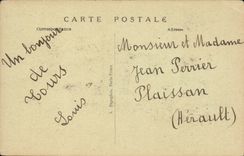 CARTE POSTALE
Correspondance
Adresse
Un bonjour
de
Tours
Louis
Monsieur et Madame
Jean Perrier
Plaissan
(Hérault)